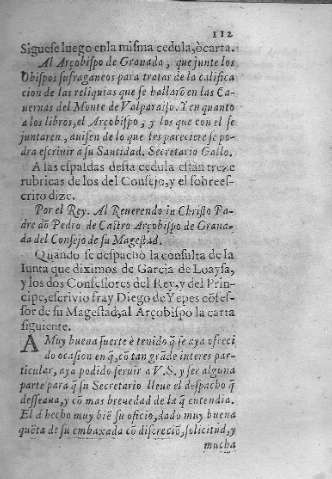 112
Siguese luego en la misma cedula, ò carta.
Al Arçobispo de Granada, que junte los
Obispos sufraganeos para tratar de la califica
cion de las reliquias que se hallarõ en las Ca-
uernas del Monte de Valparaiso. Y en quanto
a los libros, el Arçobispo, y los que con el se
juntaren, auisen de lo que les pareciere se po-
dra escriuir a su Santidad. Secretario Gallo.
A las espaldas desta cedula estan treze
rubricas de los del Consejo, y el sobrees-
crito dize.
Por el Rey. Al Reuerendo in Christo Pa-
dre dõ Pedro de Castro Arçobispo de Grana-
da del Consejo de su Magestad.
Quando se despacho la consulta de la
Iunta que diximos de Garcia de Loaysa,
y los dos Confessores del Rey, y del Prin-
cipe, escriuio fray Diego de Yepes cõfes-
sor de su Magestad, al Arçobispo la carta
siguiente.
A Muy buena suerte è tenido q̃ se aya ofreci
do ocasion en q̃, cõ tan grãde interes par-
ticular, aya podido seruir a V.S. y ser alguna
parte para q̃ su Secretario lleue el despacho q̃
desseaua, y cõ mas breuedad de la q̃ entendia.
El à hecho muy biẽ su oficio, dado muy buena
quẽta de su embaxada cõ discreciõ, solicitud, y
mucha